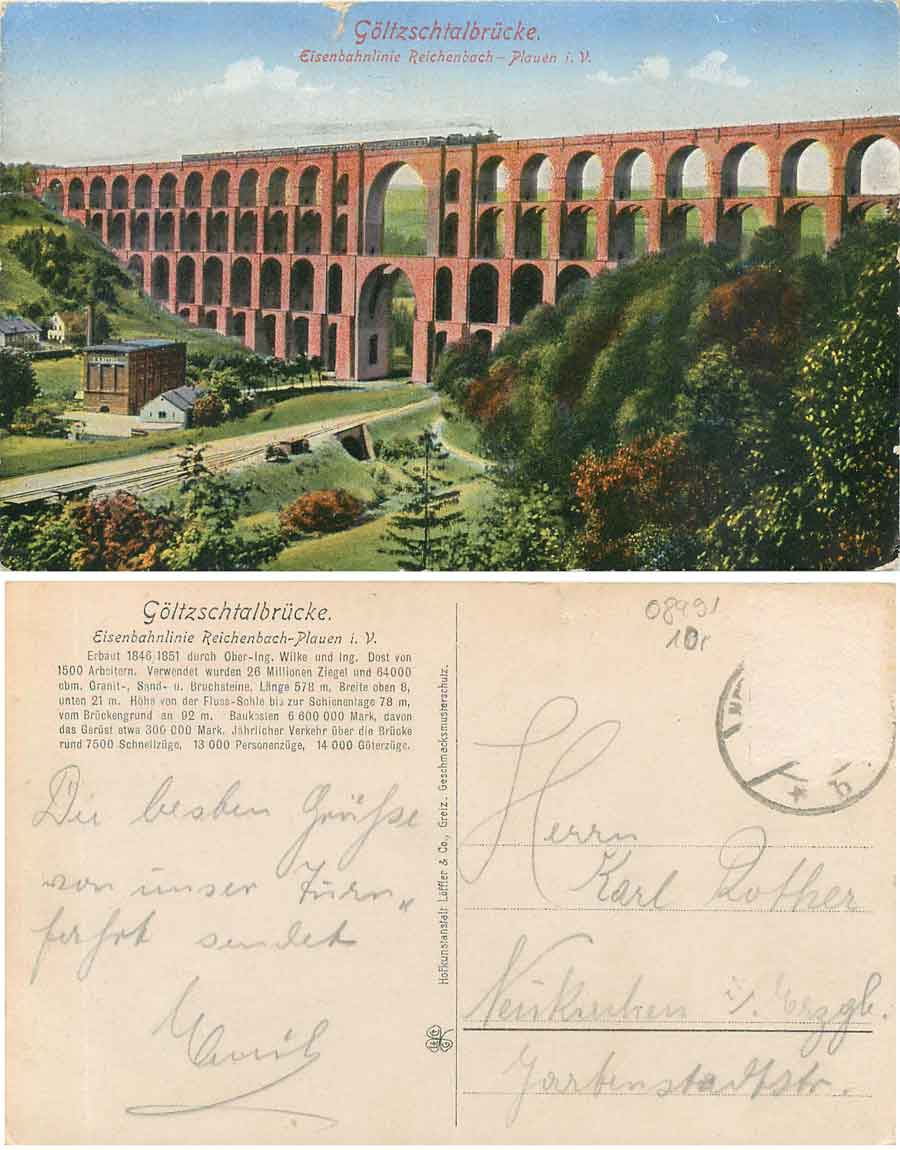 Göltzschtalbrücke.
Eisenbahnlinie Reichenbach-Plauen i. V.
Göltzschtalbrücke.
Eisenbahnlinie Reichenbach-Plauen i. V.
Erbaut 1846/1851 durch Ober-Ing. Wilke und Ing. Dost von
1500 Arbeitern. Verwendet wurden 26 Millionen Ziegel und 64000
cbm. Granit-, Sand- u. Bruchsteine. Länge 578 m. Breite oben 8,
unten 21 m. Höhe von der Fluss-Sohle bis zur Schienenlage 78 m,
vom Brückengrund an 92 m. Baukosten 6 600 000 Mark, davon
das Gerüst etwa 300 000 Mark. Jährlicher Verkehr über die Brücke
rund 7500 Schnellzüge, 13 000 Personenzüge, 14 000 Güterzüge.
Die besten Grüße
von unser Turn„
fahrt sendet
Emil
Hofkunstanstalt Löffler & Co., Greiz. Geschmacksmusterschutz.
08491
Herrn
Karl Rother
Neukirchen i/ Erzgb.
Gartenstadtstr.